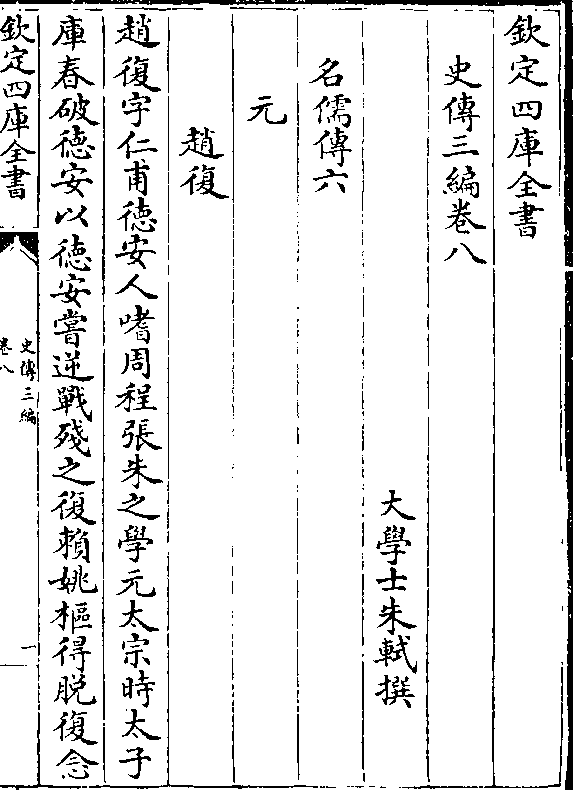 欽定四庫全書
史傳三編卷八
大學士朱軾撰
名儒傳六
元
趙復
趙復字仁甫徳安人嗜周程張朱之學元太宗時太子
庫春破徳安以徳安嘗逆戰殘之復賴姚樞得脱復念
欽定四庫全書
史傳三編
卷八
一